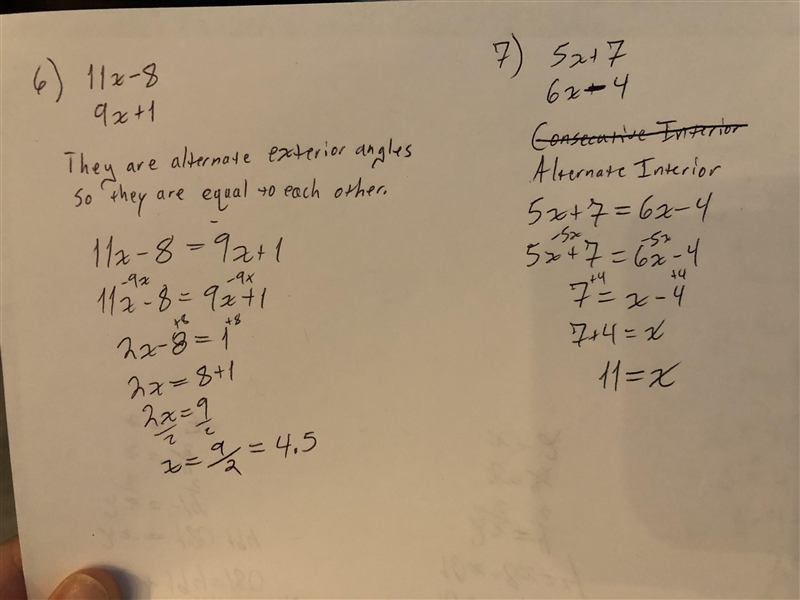 6) 11x-8
9x+1
They are alternate exterior angles
so they are equal to each other.
11x-8 = 9x+1
-9x -9x
11x-8 = 9x+1
+8 +8
2x-8 = 1
2x = 8+1
2x/2 = 9/2
x = 9/2 = 4.5
7) 5x+7
6x-4
Consecutive Interior
Alternate Interior
5x+7 = 6x-4
-5x -5x
5x+7 = 6x-4
+4 +4
7 = x-4
7+4 = x
11 = x